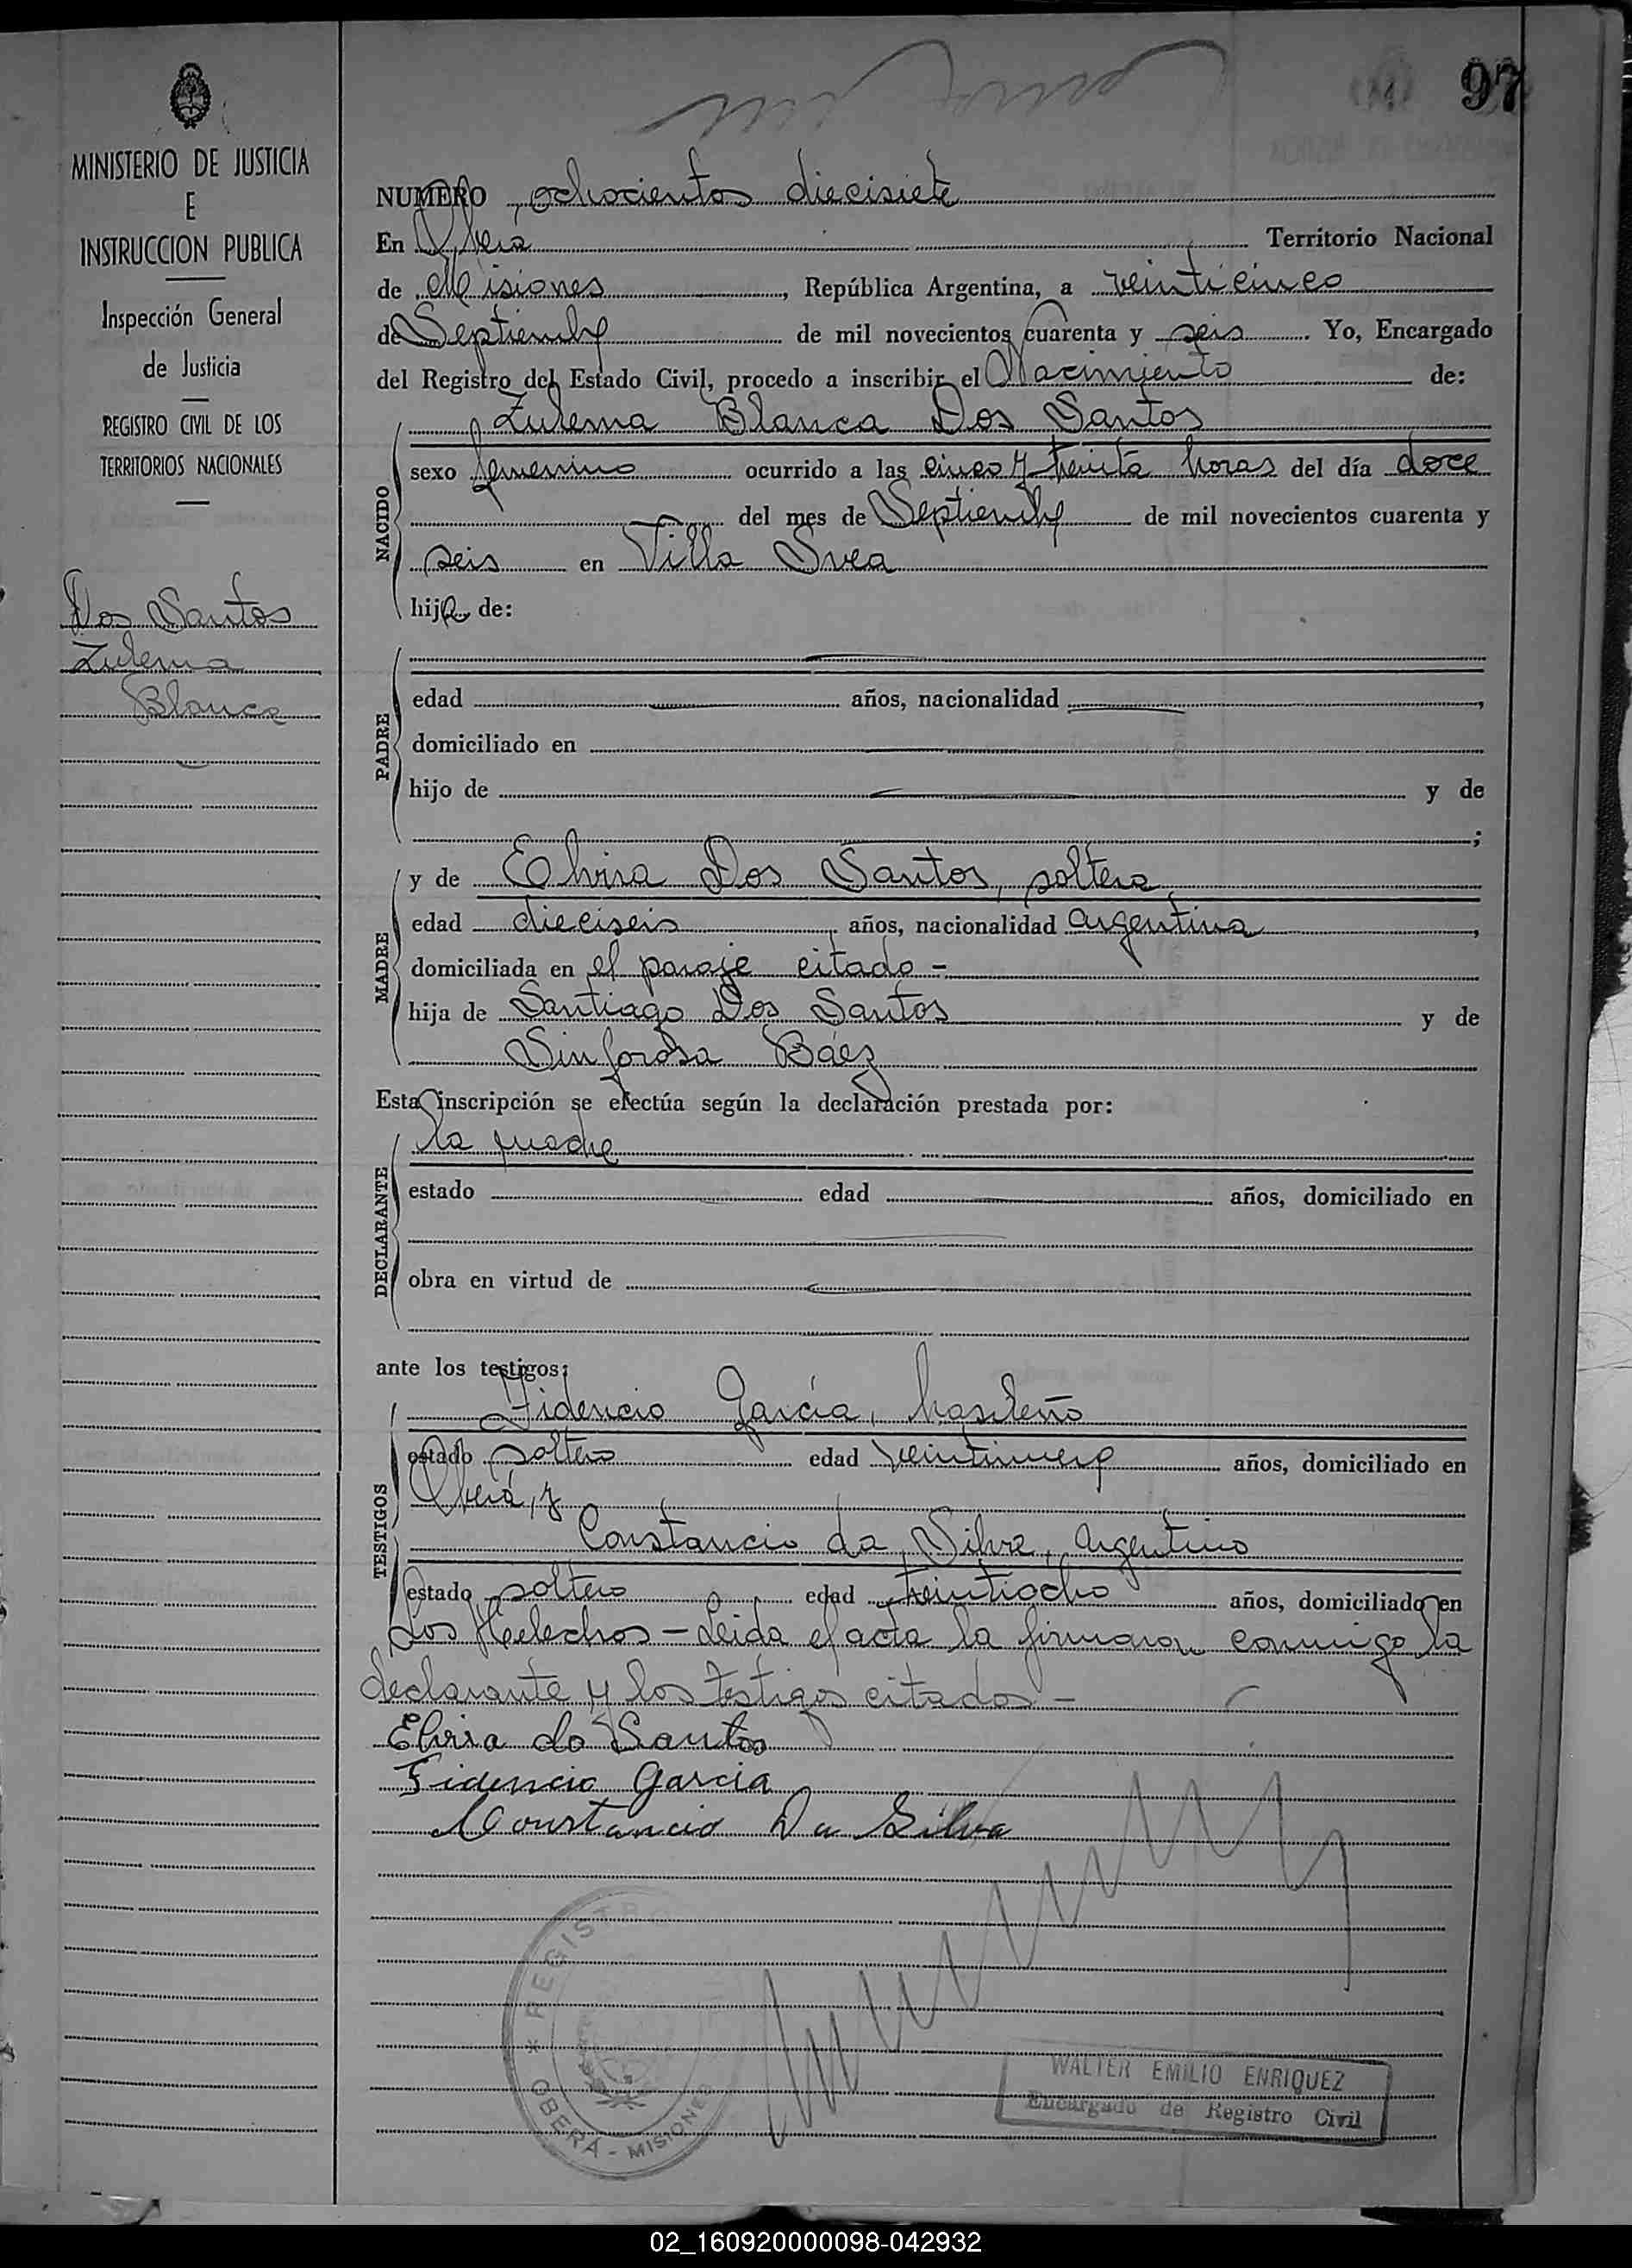 97
MINISTERIO DE JUSTICIA
E
INSTRUCCION PUBLICA
Inspección General
de Justicia
REGISTRO CIVIL DE LOS
TERRITORIOS NACIONALES
Dos Santos
Zulema
Blanca
NUMERO ochocientos diecisiete
En Oberá Territorio Nacional
de Misiones, República Argentina, a veinticinco
de Septiembre de mil novecientos cuarenta y seis. Yo, Encargado
del Registro del Estado Civil, procedo a inscribir el Nacimiento de:
NACIDO
Zulema Blanca Dos Santos
sexo femenino ocurrido a las cinco y treinta horas del día doce
del mes de Septiembre de mil novecientos cuarenta y
seis en Villa Svea
hija de:
PADRE
edad años, nacionalidad ,
domiciliado en
hijo de y de
;
MADRE
y de Elvira Dos Santos, soltera,
edad dieciseis, años, nacionalidad argentina,
domiciliada en el paraje citado -
hija de Santiago Dos Santos y de
Sinforosa Báez
Esta inscripción se efectúa según la declaración prestada por:
DECLARANTE
la madre
estado edad años, domiciliado en
obra en virtud de
ante los testigos:
TESTIGOS
Fidencio García, brasileño
estado soltero edad veintinueve años, domiciliado en
Oberá, y
Constancio da Silva, argentino
estado soltero edad treintiocho años, domiciliado en
Los Helechos - Leida el acta la firmaron conmigo la
declarante y los testigos citados -
Elvira do Santos
Fidencio Garcia
Constancio Da Silva
REGISTRO
* OBERÁ - MISIONES
WALTER EMILIO ENRIQUEZ
Encargado de Registro Civil
02_160920000098-042932